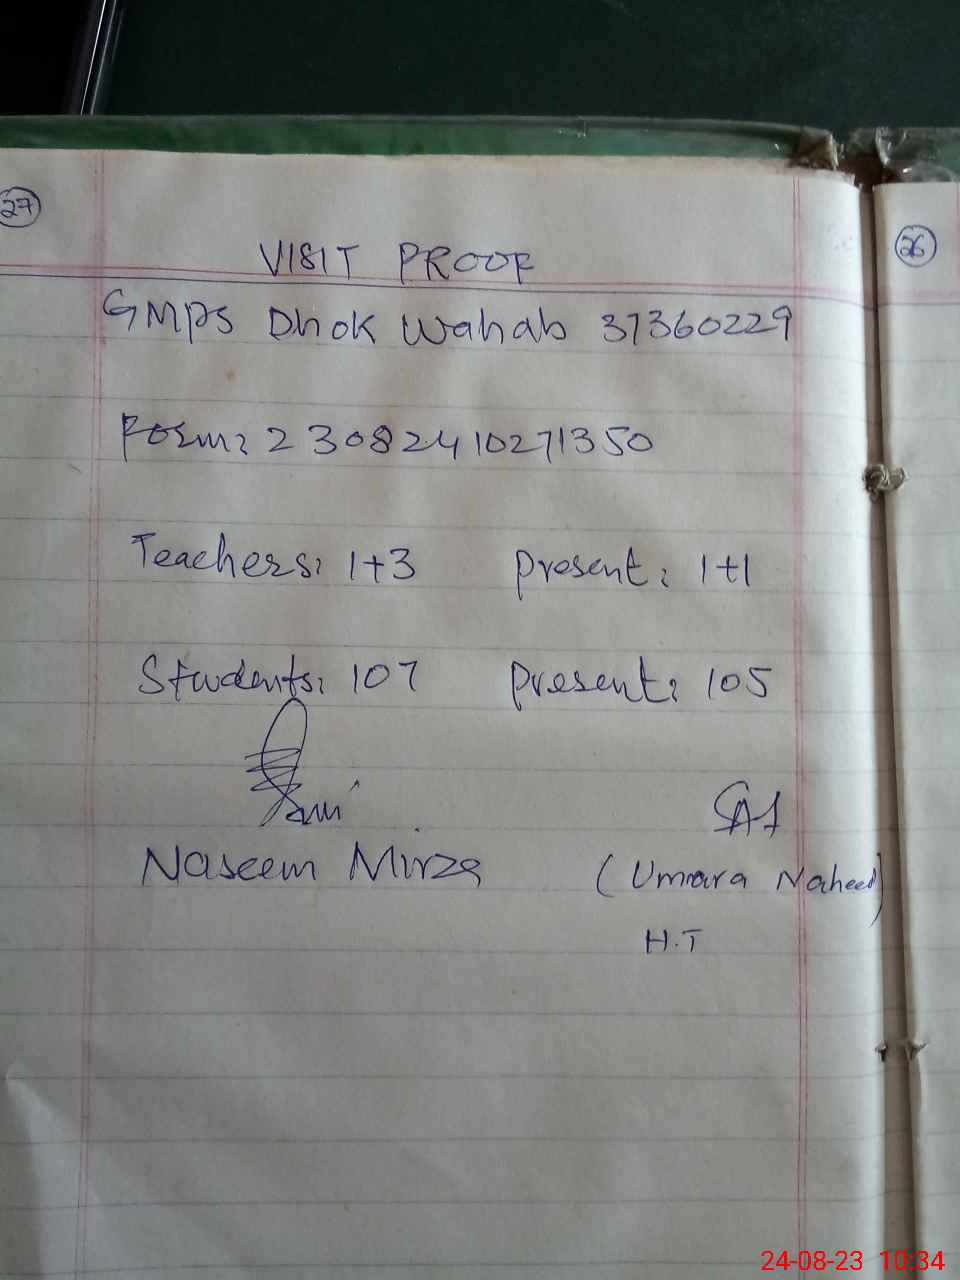 27
26
VISIT PROOF
GMPS Dhok Wahab 37360229
Form: 23082410271350
Teachers: 1+3 Present: 1+1
Students: 107 Present: 105
Naseem Mirza
(Umara Naheed)
H.T
24-08-23 10:34